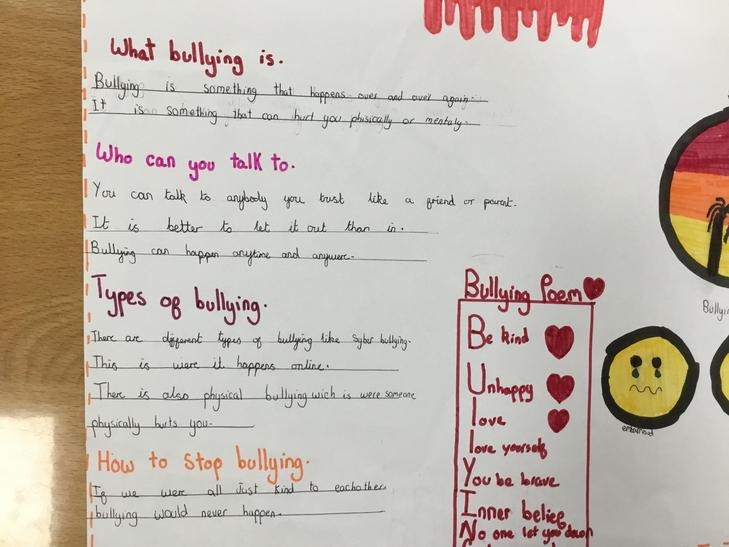 What bullying is.
Bullying is something that happens over and over again.
It is something that can hurt you phisically or mentaly.
Who can you talk to.
You can talk to anybody you trust like a friend or parent.
It is better to let it out than in.
Bullying can happen anytime and anywere.
Types of bullying.
There are different types of bullying like Syber bullying.
This is were it happens online.
There is also physical bullying wich is were someone
physically hurts you.
How to stop bullying.
If we were all Just kind to eachother
bullying would never happen.
Bullying Poem
Be kind
Unhappy
love
love yourself
You be brave
Inner belief
No one let you down
Bullyi